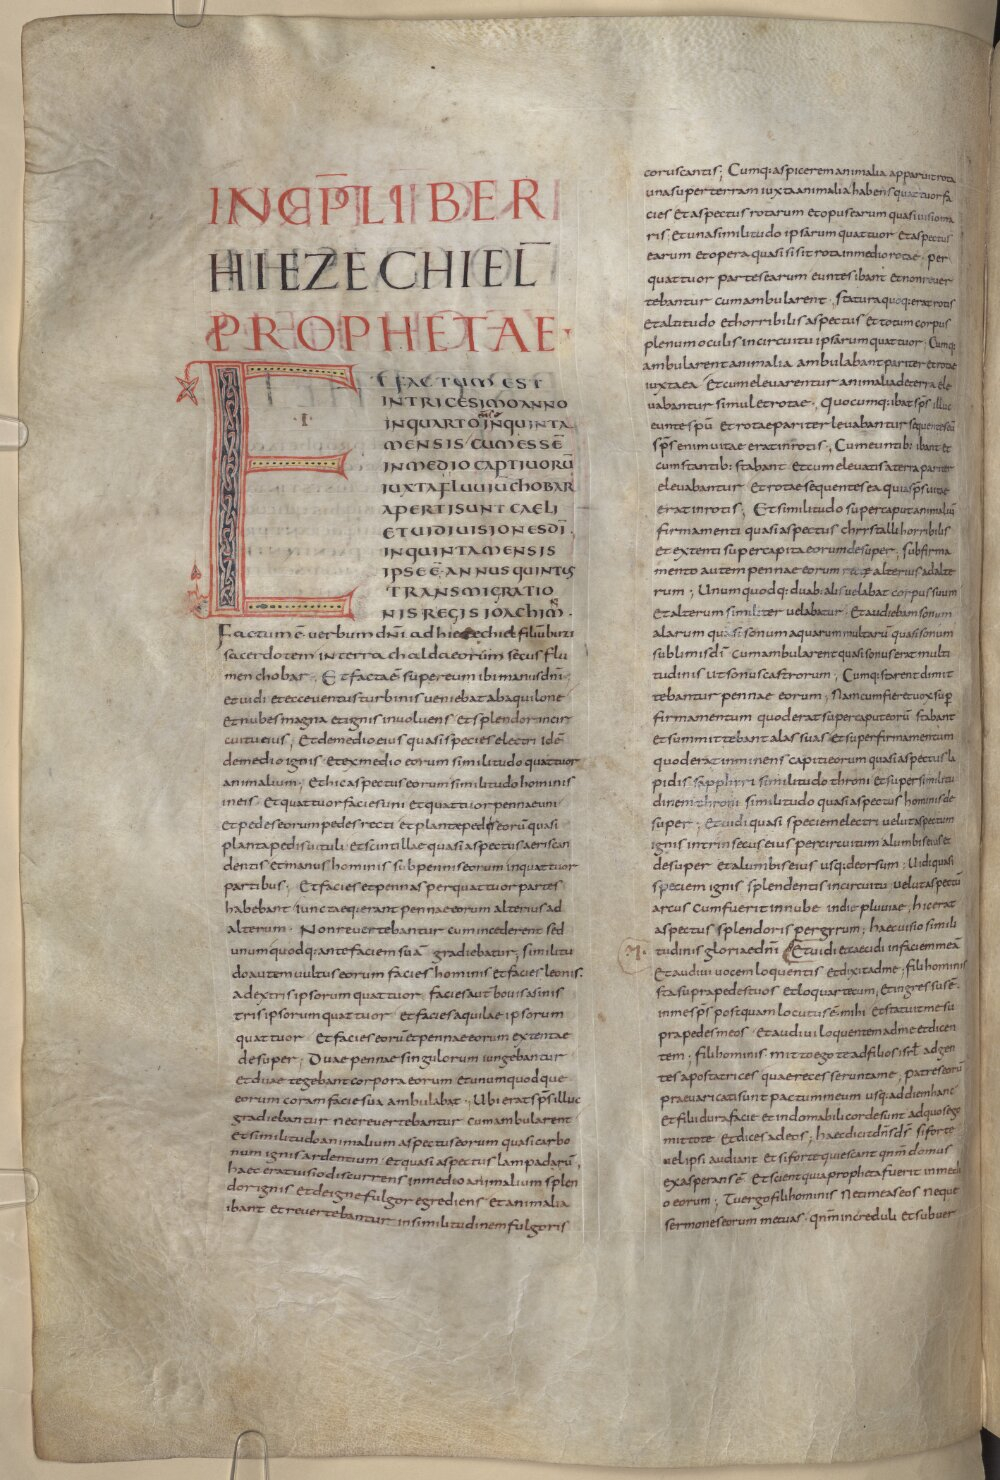 INCP̄ LIBER
HIEZECHIEL̄
PROPHETAE·
ET FACTUM EST
·I·
IN TRICESIMO ANNO
IN QUARTO mense IN QUINTA
MENSIS CUM ESSĒ
IN MEDIO CAPTIVORŪ
IUXTA FLUVIŪ CHOBAR
APERTI SUNT CAELI
ET VIDI VISIONES DĪ·
IN QUINTA MENSIS
IPSE Ē ANNUS QUINTUS
TRANSMIGRATIO
NIS REGIS IOACHIM·
Factum ē verbum dn̄i ad hiezechiel filiū buzi
sacerdotem in terra chaldaeorum secus flu
men chobar; Et facta ē super eum ibi manus dn̄i
et vidi et ecce ventus turbinis veniebat ab aquilone
et nubes magna et ignis involvens et splendor in cir
cuitu eius; Et de medio eius quasi species electri id ē
de medio ignis et ex medio eorum similitudo quattuor
animalium· Et hic aspectus eorum similitudo hominis
in eis· Et quattuor facies uni et quattuor pennae uni
et pedes eorum pedes recti et planta pedis eorū quasi
planta pedis vituli· et scintillae quasi aspectus aeris can
dentis et manus hominis sub pennis eorum in quattuor
partibus; Et facies et pennas per quattuor partes
habebant iunctaeq: erant pennae eorum alterius ad
alterum· Non revertebantur cum incederent sed
unumquodq: ante faciem suā gradiebatur; similitu
do autem vultus eorum facies hominis et facies leonis
a dextris ipsorum quattuor· facies aut̄ bovis a sinis
tris ipsorum quattuor· et facies aquilae ipsorum
quattuor· Et facies eorū et pennae eorum extentae
desuper; Duae pennae singulorum iungebantur
et duae tegebant corpora eorum et unumquodque
eorum coram facie sua ambulabat· Ubi erat sp̄s illuc
gradiebantur nec revertebantur cum ambularent
et similitudo animalium aspectus eorum quasi carbo
num ignis ardentium· et quasi aspectus lampadarū,
haec erat visio discurrens in medio animalium splen
dor ignis et de igne fulgor egrediens et animalia
ibant et revertebantur in similitudinem fulgoris
coruscantis; Cumq: aspicerem animalia apparuit rota
una super terram iuxta animalia habens quattuor fa
cies et aspectus rotarum et opus earum quasi visio ma
ris; et una similitudo ipsarum quattuor et aspectus
earum et opera quasi si sit rota in medio rotae· per
quattuor partes earum euntes ibant et non rever
tebantur cum ambularent· statura quoq: erat rotis
et altitudo et horribilis aspectus et totum corpus
plenum oculis in circuitu ipsarum quattuor; Cumq:
ambularent animalia ambulabant pariter et rotae
iuxta ea· Et cum elevarentur animalia de terra ele
vabantur simul et rotae· Quocumq: ibat sp̄s illuc
eunte spū et rotae pariter levabantur sequentes eū
sp̄s enim vitae erat in rotis; Cum euntib: ibant et
cum stantib: stabant et cum elevatis a terra pariter
elevabantur et rotae sequentes ea quia sp̄s vitae
erat in rotis; Et similitudo super caput animaliū
firmamenti quasi aspectus chrystalli horribilis
et extenti super capita eorum desuper; sub firma
mento autem pennae eorum rectae alterius ad alte
rum; Unumquodq: duab: alis velabat corpus suum
et alterum similiter velabatur· Et audiebam sonum
alarum quasi sonum aquarum multarū quasi sonum
sublimis dī cum ambularent quasi sonus erat multi
tudinis ut sonus castrorum; Cumq: starent dimit
tebantur pennae eorum; Nam cum fieret vox sup̄
firmamentum quod erat super caput eorū stabant
et summittebant alas suas et super firmamentum
quod erat inminens capiti eorum quasi aspectus la
pidis sapphyri similitudo throni et super similitu
dinem throni similitudo quasi aspectus hominis de
super; Et vidi quasi speciem electri velut aspectum
ignis intrinsecus eius per circuitum a lumbis eius et
desuper et a lumbis eius usq: deorsum; Vidi quasi
speciem ignis splendentis in circuitu velut aspectū
arcus cum fuerit in nube in die pluviae, hic erat
aspectus splendoris per gyrum; haec visio simili
tudinis gloriae dn̄i Et vidi et cecidi in faciem meā
Et audivi vocem loquentis et dixit ad me; fili hominis
sta supra pedes tuos et loquar tecum; et ingressus ē
in me sp̄s postquam locutus ē mihi et statuit me su
pra pedes meos· et audivi loquentem ad me et dicen
tem; fili hominis mitto ego te ad filios isrl̄ ad gen
tes apostatrices quae recesserunt a me; patres eorū
praevaricati sunt pactum meum usq: ad diem hanc
et filii dura facie et indomabili corde sunt ad quos ego
mitto te et dices ad eos; haec dicit dn̄s ds̄ si forte
vel ipsi audiant et si forte quiescant qn̄m domus
exasperans ē· Et scient quia propheta fuerit in medi
o eorum; Tu ergo fili hominis ne timeas eos neque
sermones eorum metuas· qn̄m increduli et subver